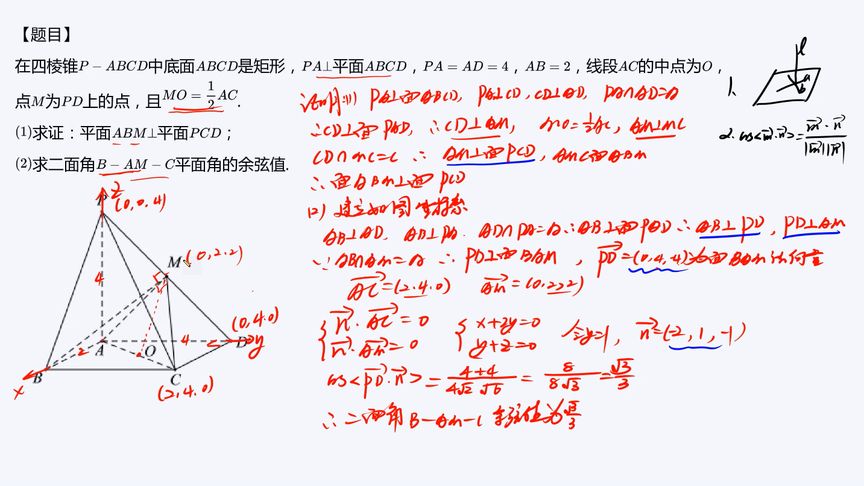 【题目】
在四棱锥P-ABCD中底面ABCD是矩形，PA⊥平面ABCD，PA=AD=4，AB=2，线段AC的中点为O，
点M为PD上的点，且MO=\frac{1}{2}AC.
(1)求证：平面ABM⊥平面PCD；
(2)求二面角B-AM-C平面角的余弦值.
证明:(1) PA⊥面ABCD, PA⊥CD, CD⊥AD, PA∩AD=A
∴CD⊥面PAD, ∴CD⊥AM, MO=\frac{1}{2}AC, AM⊥MC
CD∩MC=C ∴ AM⊥面PCD, AM⊂面ABM
∴面ABM⊥面PCD
(2) 建立如图坐标系
AB⊥AD, AB⊥PA, AD∩PA=A ∴AB⊥面PAD ∴AB⊥PD, PD⊥AM
∵AB∩AM=A ∴ PD⊥面BAM, PD=(0,4,4)为面BAM法向量
AC=(2.4.0) AM=(0.2.2)
n·AC=0 x+2y=0 令y=1, n=(-2,1,-1)
n·AM=0 y+z=0
cos<PD.n>=\frac{4+4}{4√2 √6}=\frac{8}{8√3}=\frac{√3}{3}
∴二面角B-AM-C余弦值为\frac{√3}{3}
1.
l
a
b
2. cos<m.n>=\frac{m·n}{|m||n|}
z
P
(0,0,4)
4
M
(0,2,2)
(0,4.0)
4
A
O
D
y
2
x
B
C
(2,4.0)